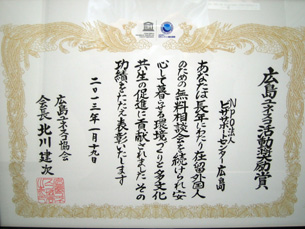 広島ユネスコ活動奨励賞
NPO法人
ビザサポートセンター広島
あなたは長年にわたり在留外国人
のための無料相談会を続けられ安
心して暮せる環境づくりと多文化
共生の促進に貢献されました その
功績をたたえ表彰いたします
二〇一三年一月十九日
広島ユネスコ協会
会長 北川建次